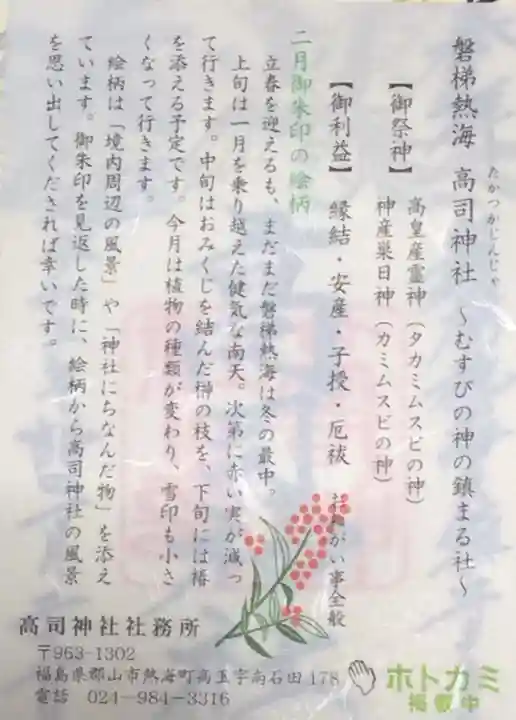 磐梯熱海 高司神社 ～むすびの神の鎮まる社～
たかつかじんじゃ
【御祭神】 高皇産霊神（タカミムスビの神）
神産巣日神（カミムスビの神）
【御利益】 縁結・安産・子授・厄祓
お願がい事全般
二月御朱印の絵柄
立春を迎えるも、まだまだ磐梯熱海は冬の最中。
上旬は一月を乗り越えた健気な南天。次第に赤い実が減っ
て行きます。中旬はおみくじを結んだ榊の枝を、下旬には椿
を添える予定です。今月は植物の種類が変わり、雪印も小さ
くなって行きます。
絵柄は「境内周辺の風景」や「神社にちなんだ物」を添え
ています。御朱印を見返した時に、絵柄から高司神社の風景
を思い出してくだされば幸いです。
高司神社社務所
〒963-1302
福島県郡山市熱海町高玉字南石田178
電話 024-984-3316
ホトカミ
掲載中